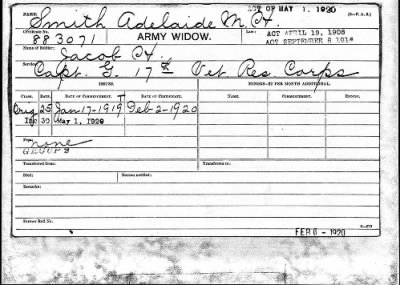 NAME: Smith Adelaide M. H. ACT OF MAY 1, 1920 (3-P. A. B.)
Certificate No. 883071 ARMY WIDOW. Law: ACT APRIL 19, 1908
ACT SEPTEMBER 8 1916
Name of Soldier: Jacob H.
Service: Capt. G. 17th Vet Res Corps
ISSUES. MINOR—$2 PER MONTH ADDITIONAL.
CLASS. RATE. DATE OF COMMENCEMENT. DATE OF CERTIFICATE. NAME. COMMENCEMENT. ENDING.
Orig 25 Jan 17-1919 Feb-2-1920
Inc 30 May 1, 1920
From none
GROUP 3
Transferred from: Transferred to:
Died: Bureau notified:
Remarks:
Former Roll No.
FEB 6 - 1920